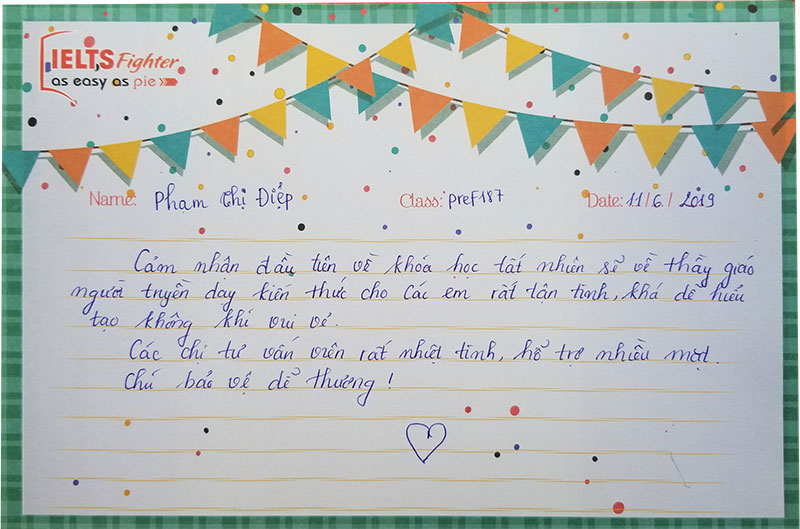 IELTS Fighter
as easy as pie
Name: Phạm Thị Điệp Class: preF187 Date: 11/6/2019
Cảm nhận đầu tiên về khóa học tất nhiên sẽ về thầy giáo
người truyền dạy kiến thức cho các em rất tận tình, khá dễ hiểu
tạo không khí vui vẻ.
Các chị tư vấn viên rất nhiệt tình, hỗ trợ nhiều mặt.
Chú bảo vệ dễ thương!